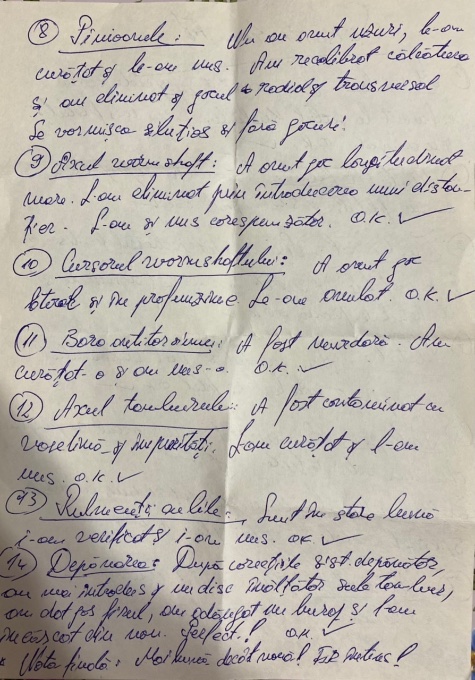 ⑧ Pinioanele: Nu au avut uzuri, le-am
curățat și le-am uns. Am recalibrat călcătura
și am eliminat și jocul radial și transversal
Se vor mișca silențios și fără jocuri!
⑨ Axul wormshaft: A avut joc longitudinal
mare. L-am eliminat prin introducerea unui distan-
țier. L-am și uns corespunzător. O.K. ✓
⑩ Cursorul wormshaftului: A avut joc
lateral și în profunzime. Le-am anulat. O.K. ✓
⑪ Bara antitorsiune: A fost murdară. Am
curățat-o și am uns-o. O.K. ✓
⑫ Axul tamburului: A fost contaminat cu
vaselină și impurități. L-am curățat și l-am
uns. O.K. ✓
⑬ Rulmenții cu bile: Sunt în stare bună
i-am verificat și i-am uns. OK ✓
⑭ Depănarea: După corecțiile sist. depănător,
am mai introdus și un disc înălțător sub tambur,
am dat jos firul, am adăugat un buraj și l-am
încărcat din nou. Perfect! O.K. ✓
* Notă finală: Mai bună decât nouă!